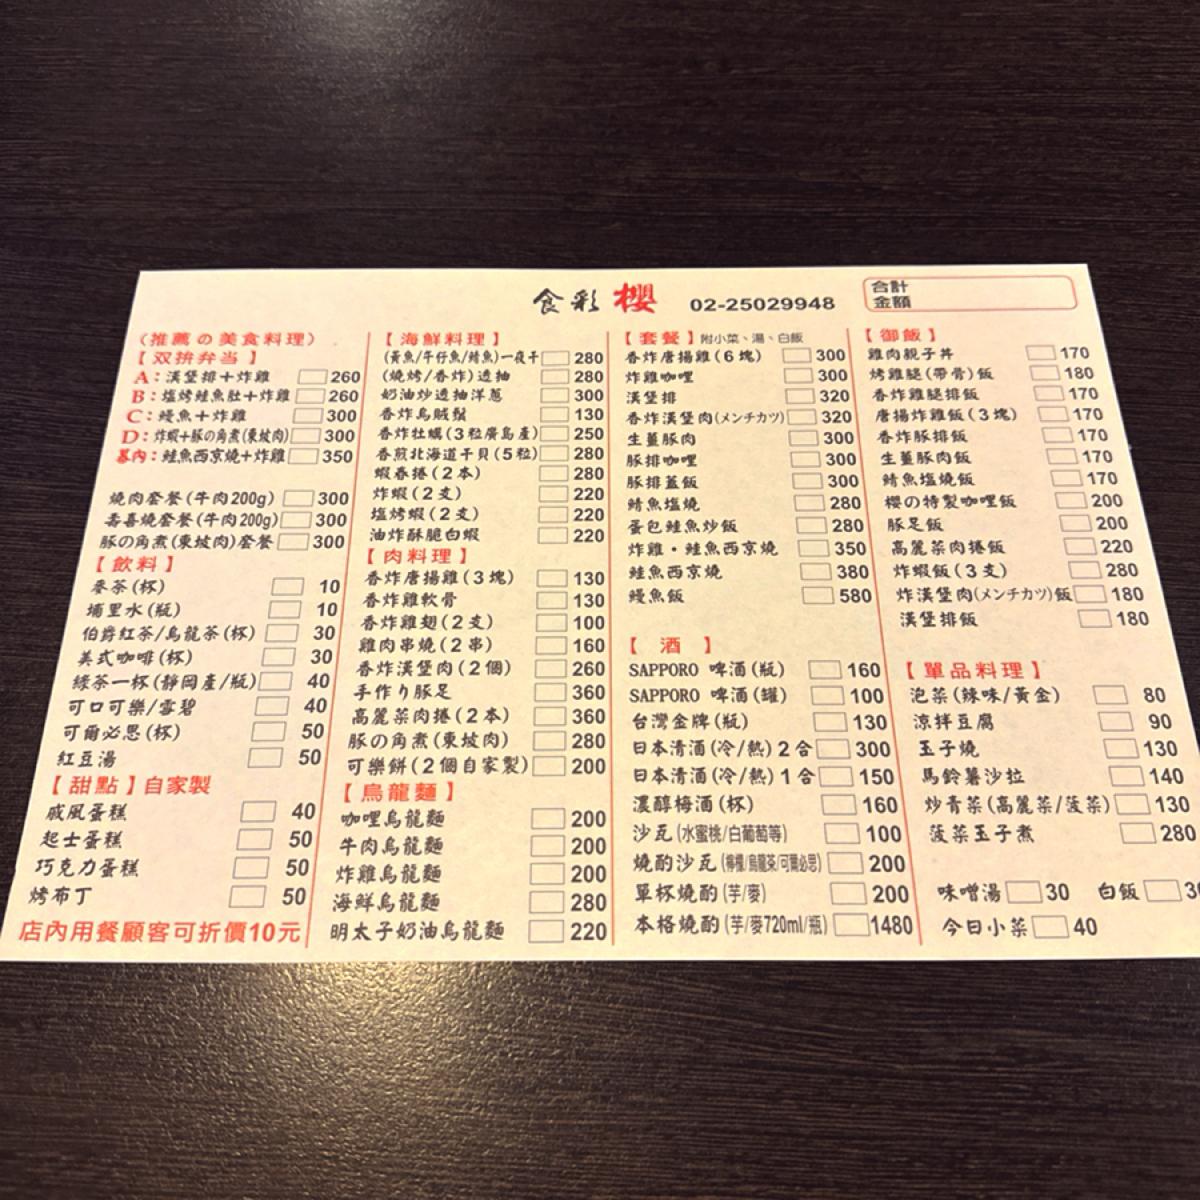 食彩 櫻 02-25029948
合計
金額
(推薦の美食料理)
【双拚弁当】
A:漢堡排+炸雞 260
B:塩烤鮭魚肚+炸雞 260
C:鰻魚+炸雞 300
D:炸蝦+豚の角煮(東坡肉) 300
幕内:鮭魚西京燒+炸雞 350
燒肉套餐(牛肉200g) 300
壽喜燒套餐(牛肉200g) 300
豚の角煮(東坡肉)套餐 300
【飲料】
麥茶(杯) 10
埔里水(瓶) 10
伯爵紅茶/烏龍茶(杯) 30
美式咖啡(杯) 30
綠茶一杯(靜岡產/瓶) 40
可口可樂/雪碧 40
可爾必思(杯) 50
紅豆湯 50
【甜點】自家製
戚風蛋糕 40
起士蛋糕 50
巧克力蛋糕 50
烤布丁 50
店內用餐顧客可折價10元
【海鮮料理】
(黃魚/午仔魚/鯖魚)一夜干 280
(燒烤/香炸)透抽 280
奶油炒透抽洋蔥 300
香炸烏賊鬚 130
香炸牡蠣(3粒廣島產) 250
香煎北海道干貝(5粒) 280
蝦春捲(2本) 280
炸蝦(2支) 220
塩烤蝦(2支) 220
油炸酥脆白蝦 220
【肉料理】
香炸唐揚雞(3塊) 130
香炸雞軟骨 130
香炸雞翅(2支) 100
雞肉串燒(2串) 160
香炸漢堡肉(2個) 260
手作り豚足 360
高麗菜肉捲(2本) 360
豚の角煮(東坡肉) 280
可樂餅(2個自家製) 200
【烏龍麵】
咖哩烏龍麵 200
牛肉烏龍麵 200
炸雞烏龍麵 200
海鮮烏龍麵 280
明太子奶油烏龍麵 220
【套餐】附小菜、湯、白飯
香炸唐揚雞(6塊) 300
炸雞咖哩 300
漢堡排 320
香炸漢堡肉(メンチカツ) 320
生薑豚肉 300
豚排咖哩 300
豚排蓋飯 300
鯖魚塩燒 280
蛋包鮭魚炒飯 280
炸雞・鮭魚西京燒 350
鮭魚西京燒 380
鰻魚飯 580
【酒】
SAPPORO 啤酒(瓶) 160
SAPPORO 啤酒(罐) 100
台灣金牌(瓶) 130
日本清酒(冷/熱)2合 300
日本清酒(冷/熱)1合 150
濃醇梅酒(杯) 160
沙瓦(水蜜桃/白葡萄等) 100
燒酌沙瓦(檸檬/烏龍茶/可爾必思) 200
單杯燒酌(芋/麥) 200
本格燒酌(芋/麥720ml/瓶) 1480
【御飯】
雞肉親子丼 170
烤雞腿(帶骨)飯 180
香炸雞腿排飯 170
唐揚炸雞飯(3塊) 170
香炸豚排飯 170
生薑豚肉飯 170
鯖魚塩燒飯 170
櫻の特製咖哩飯 200
豚足飯 200
高麗菜肉捲飯 220
炸蝦飯(3支) 280
炸漢堡肉(メンチカツ)飯 180
漢堡排飯 180
【單品料理】
泡菜(辣味/黃金) 80
涼拌豆腐 90
玉子燒 130
馬鈴薯沙拉 140
炒青菜(高麗菜/菠菜) 130
菠菜玉子煮 280
味噌湯 30 白飯
今日小菜 40